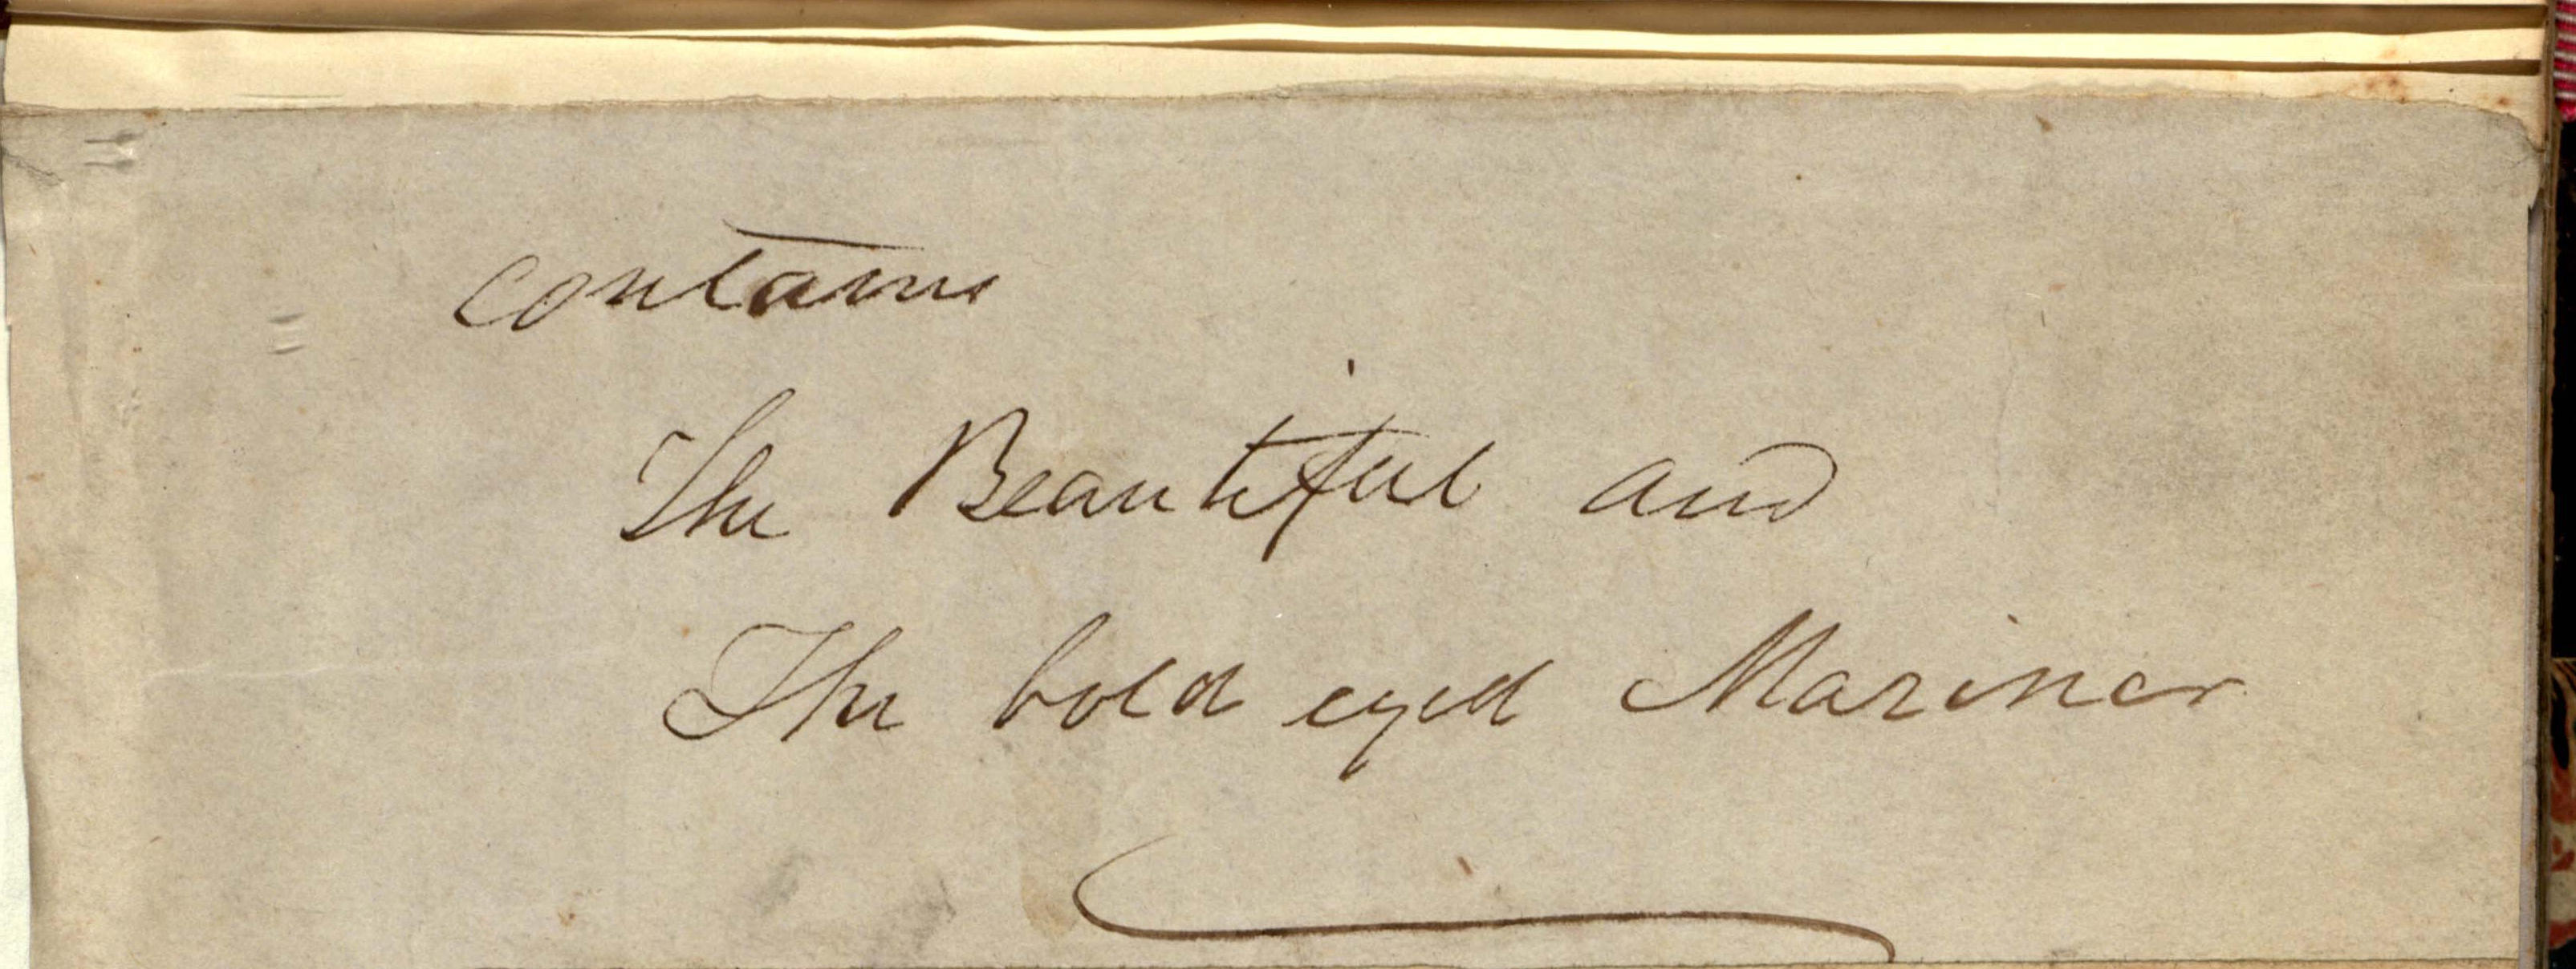 contains
The Beautiful and
The bold eyed Mariner